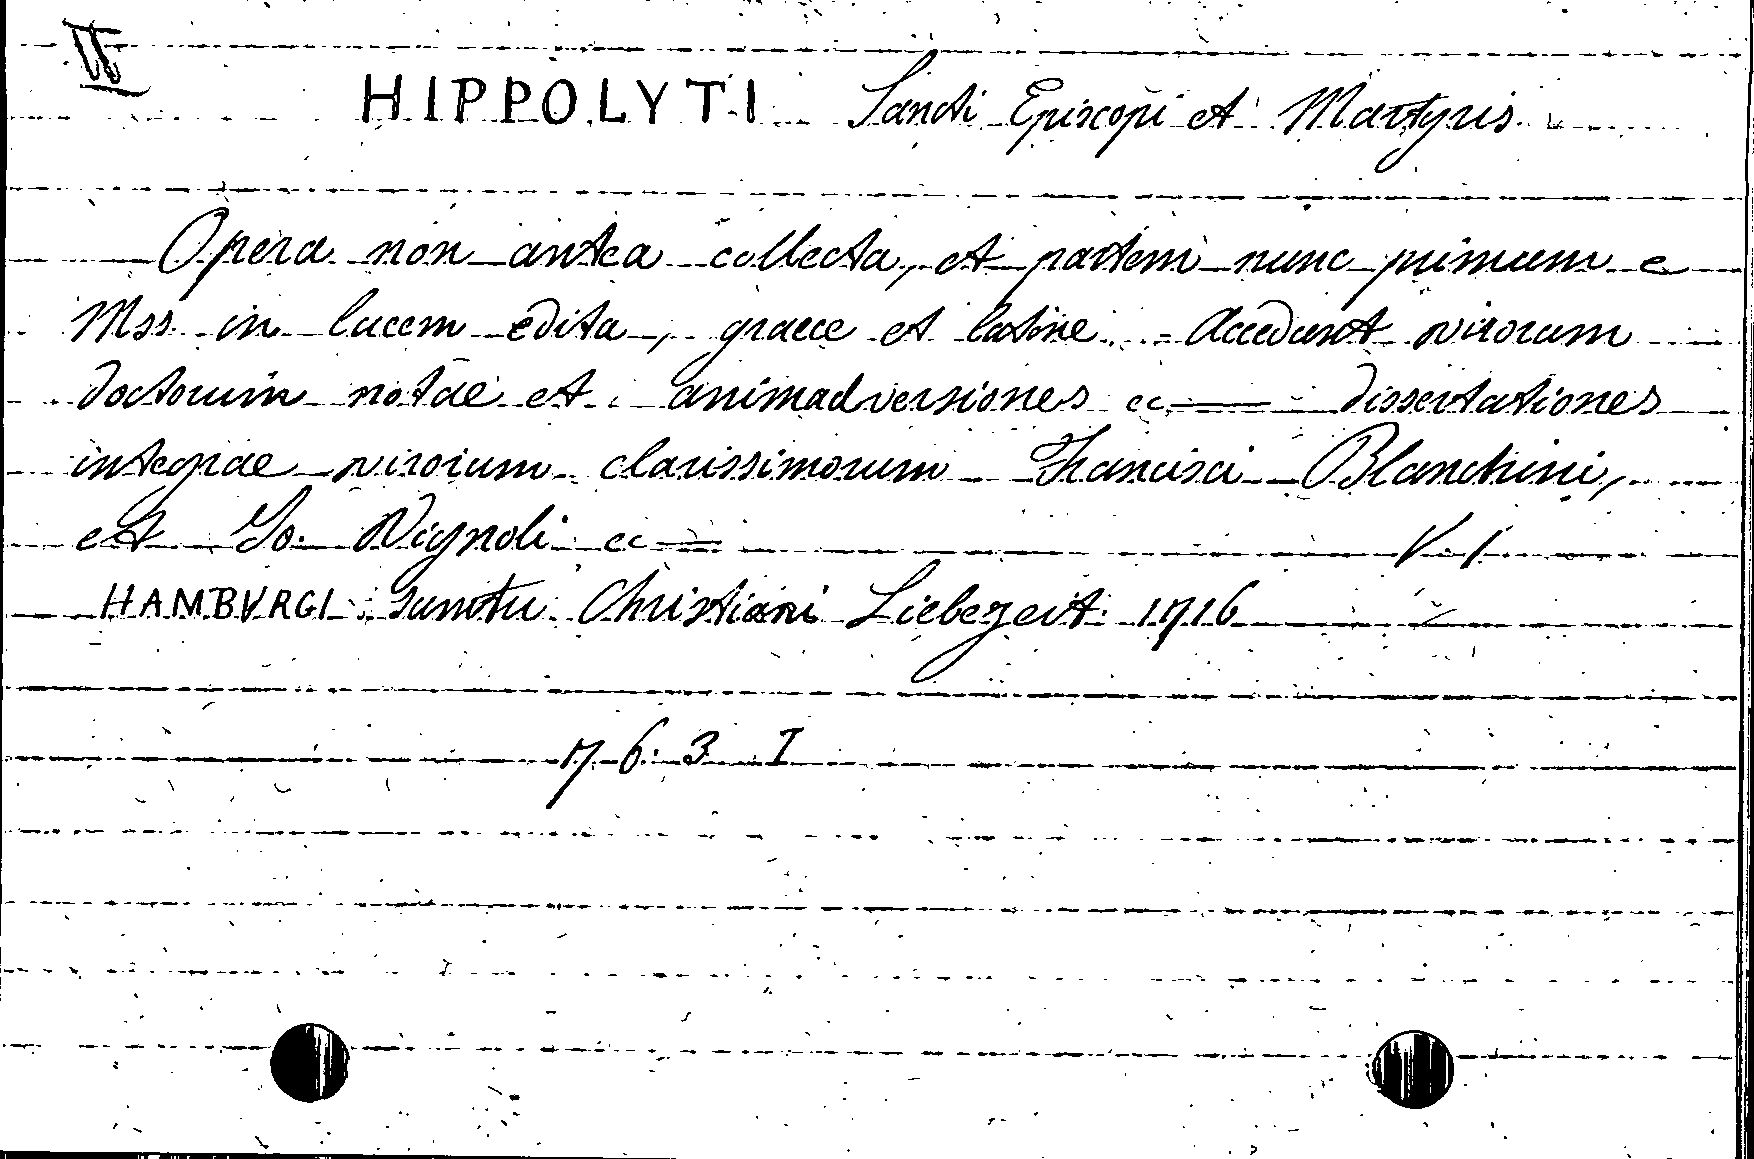 II
HIPPOLYTI Sancti Episcopi et Martyris
Opera non antea collecta, et partem nunc primum e
Mss. in lucem edita, graece et latine. - Accedunt virorum
doctorum notae et animadversiones ec. — dissertationes
integrae virorum clarissimorum Francisci Blanchini,
et Jo. Vignoli ec — V. 1
HAMBVRGI sumptu Christiani Liebezeit. 1716
17. 6. 3 I